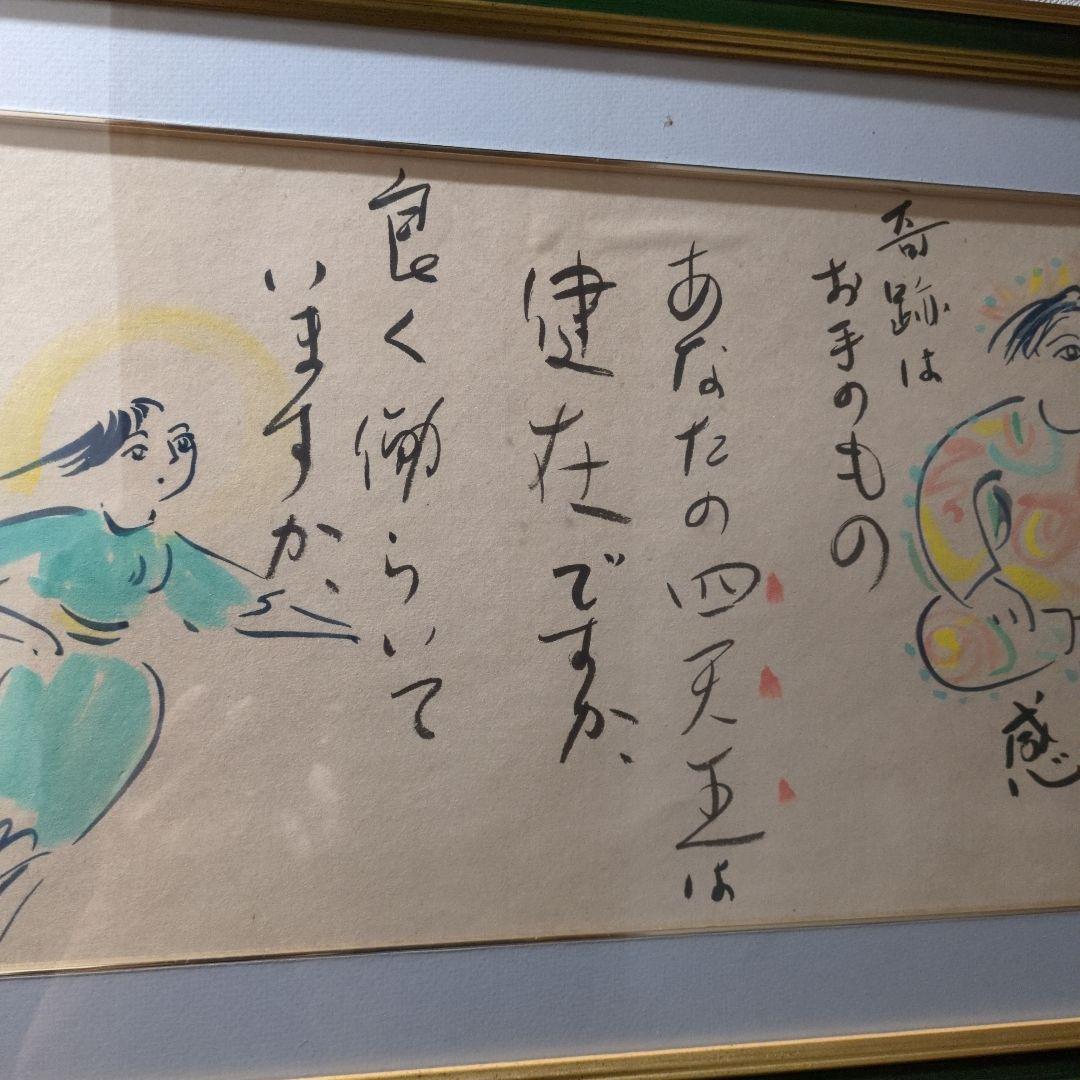 感
奇跡は
お手のもの
あなたの四天王は
健在ですか、
良く働らいて
いますか、